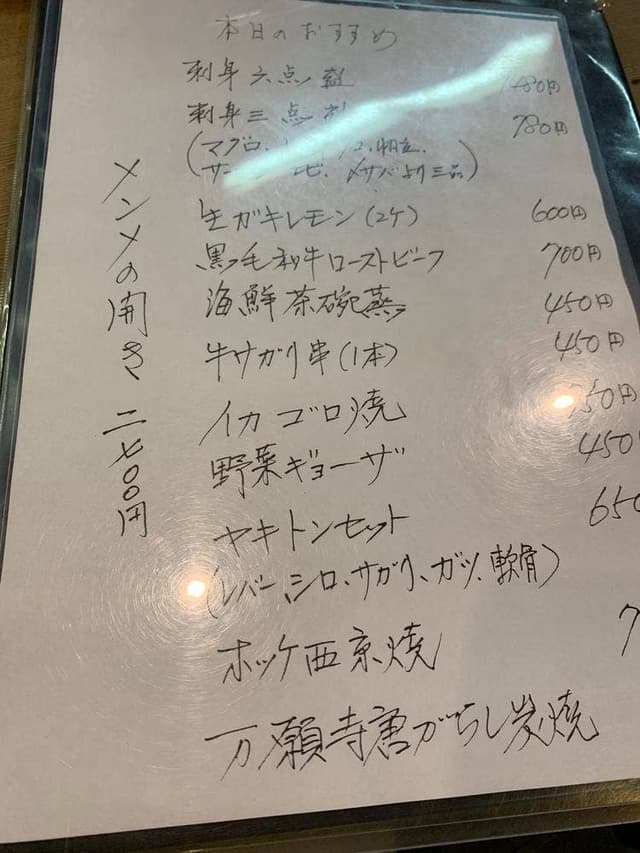 本日のおすすめ
刺身六点盛
刺身三点 780円
(マグロ、 帆立、
サー 〆サバより三品)
生ガキレモン(2ケ) 600円
黒毛和牛ローストビーフ 700円
海鮮茶碗蒸 450円
牛サガリ串(1本) 450円
イカゴロ焼
野菜ギョーザ 450
ヤキトンセット 650
(レバー、シロ、サガリ、ガツ、軟骨)
ホッケ西京焼
万願寺唐がらし炭焼
メンメの開き 二七〇〇円